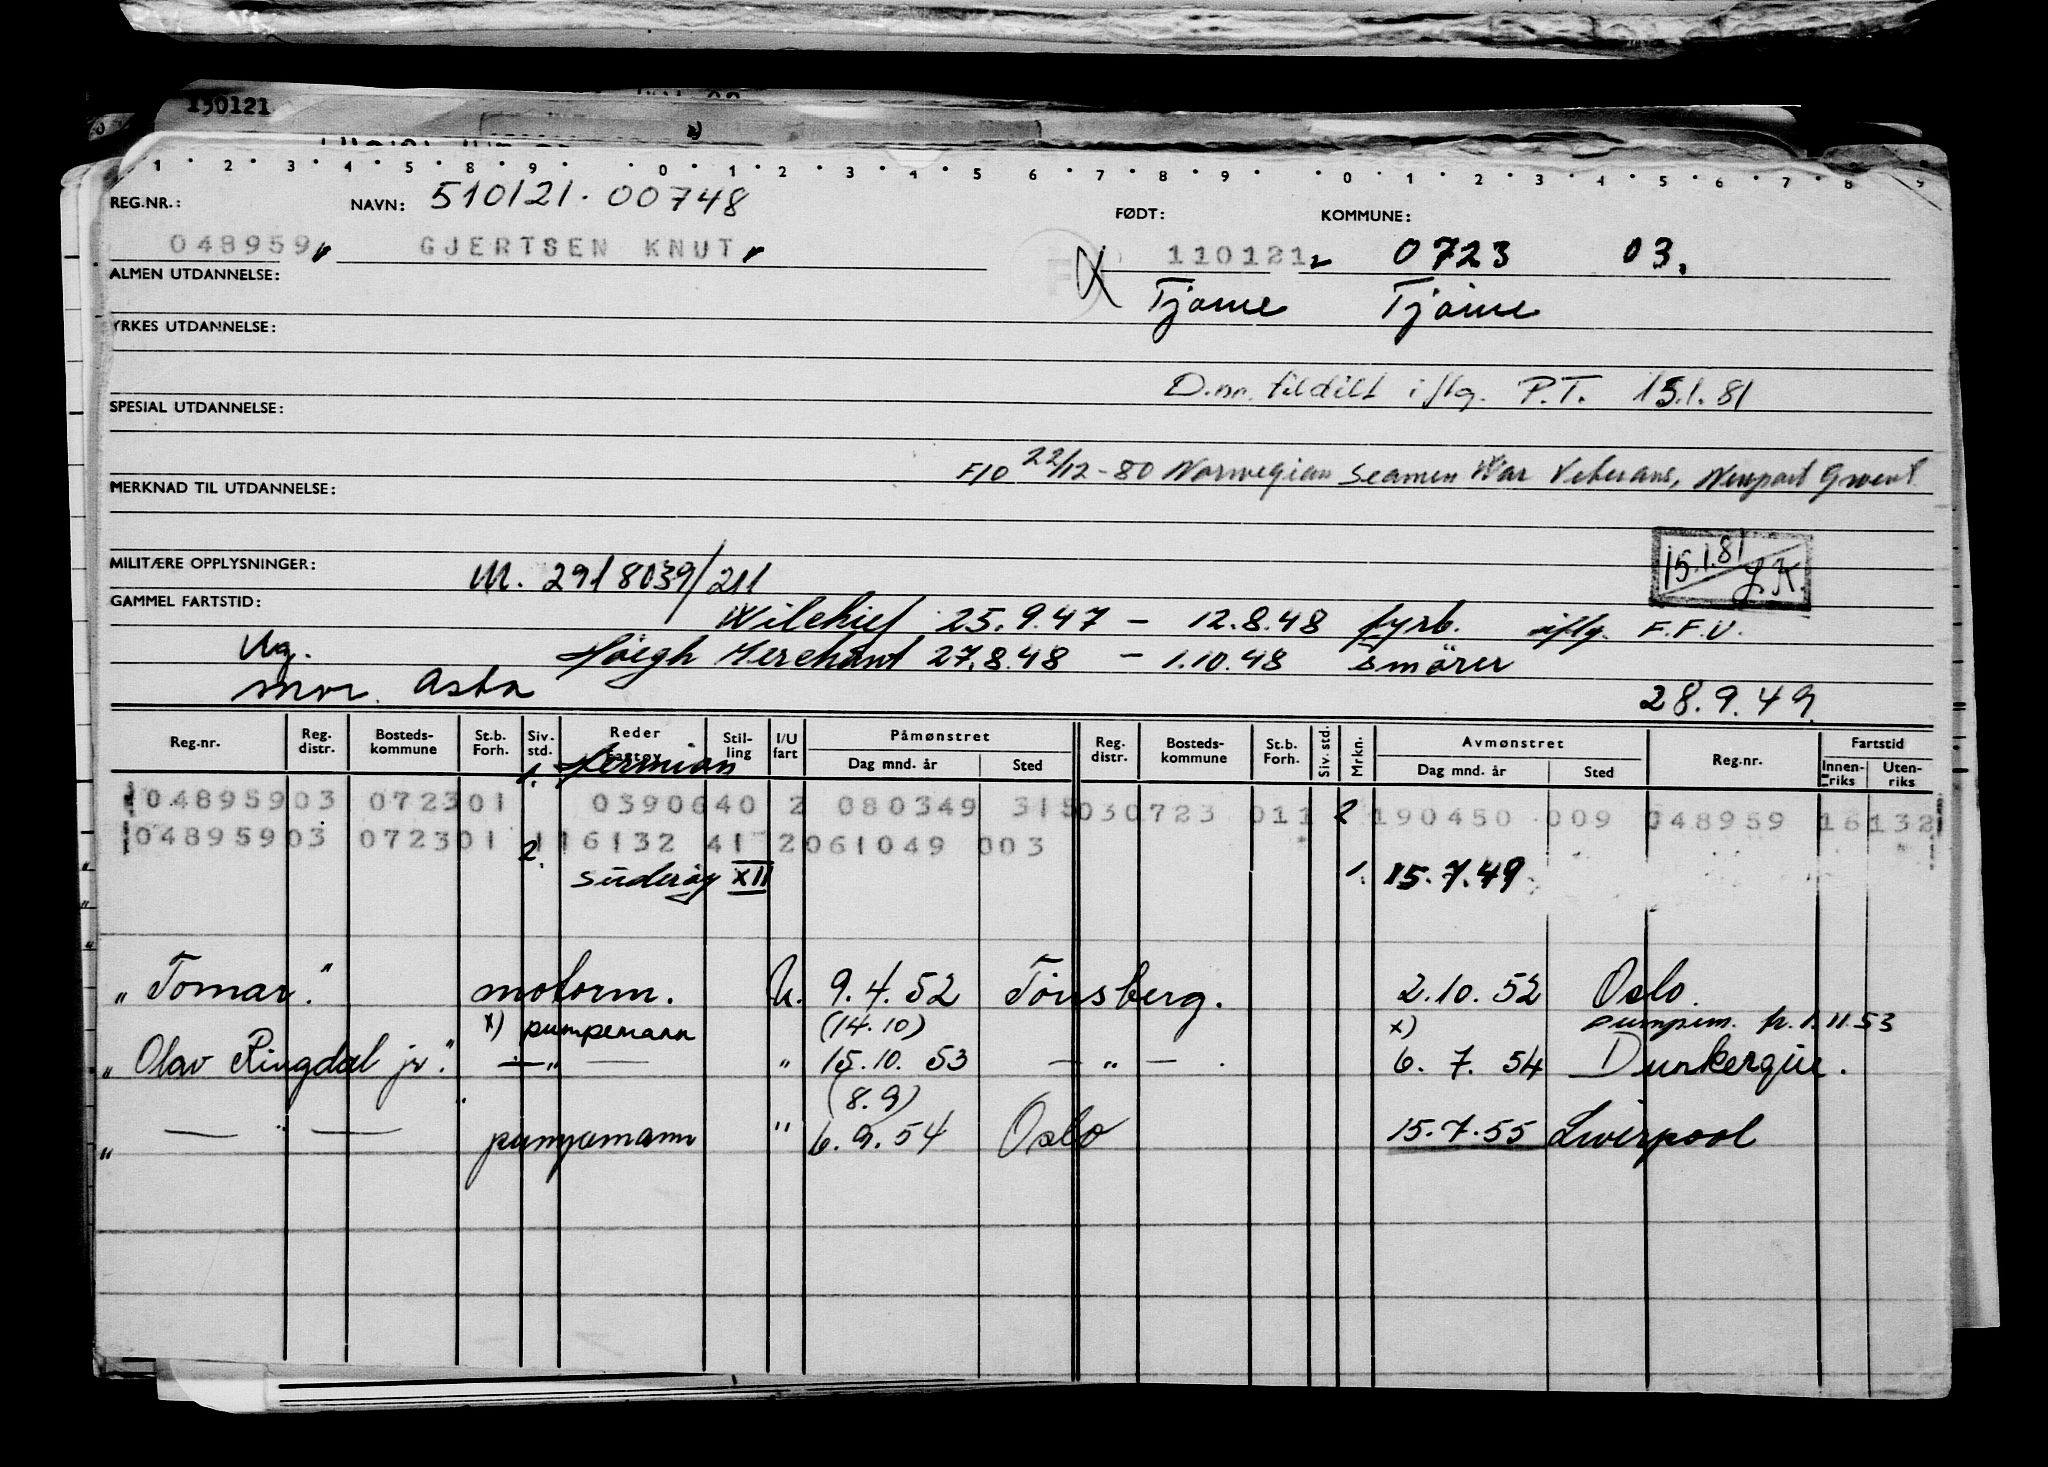 130121
1 2 3 4 5 8 9 0 1 2 3 4 5 6 7 8 9 0 1 2 3 4 5 6 7 8 9
REG.NR.: NAVN: 510121.00748 FØDT: KOMMUNE:
048959 GJERTSEN KNUT 110121 0723 03.
ALMEN UTDANNELSE: Tjøme Tjøme
YRKES UTDANNELSE:
D.nr. tildelt iflg. P.T. 15.1.81
SPESIAL UTDANNELSE:
F10 22/12-80 Norwegian Seamen War Veterans, Newport Gwent
MERKNAD TIL UTDANNELSE:
15.1.81 / J.K.
MILITÆRE OPPLYSNINGER: M. 2918039/211
GAMMEL FARTSTID: Wilchief 25.9.47 - 12.8.48 fyrb. iflg. F.F.U.
Ug. Høegh Merchant 27.8.48 - 1.10.48 smører
mor. Asta 28.9.49
Reg.nr. Reg. distr. Bosteds-kommune St.b. Forh. Siv. std. Reder Stil-ling I/U fart Påmønstret Reg. distr. Bosteds-kommune St.b. Forh. Siv. std. Mrkn. Avmønstret Reg.nr. Fartstid
Dag mnd. år Sted Dag mnd. år Sted Innen-riks Uten-riks
1. Hermion
04895903 072301 0390640 2 080349 315030723 011 2 190450 009 048959 16132
04895903 072301 2. 116132 41 2061049 003
Suderøy XII 1. 15.7.49
"Tomar." motorm. U. 9.4.52 Tönsberg. 2.10.52 Oslo.
x) pumpemann (14.10) x) pumpem. fr. 1.11.53
"Olav Ringdal jr." — " — " 15.10.53 — " — . 6.7.54 Dunkerque.
(8.9)
" — " — pumpemann " 6.9.54 Oslo 15.7.55 Liverpool